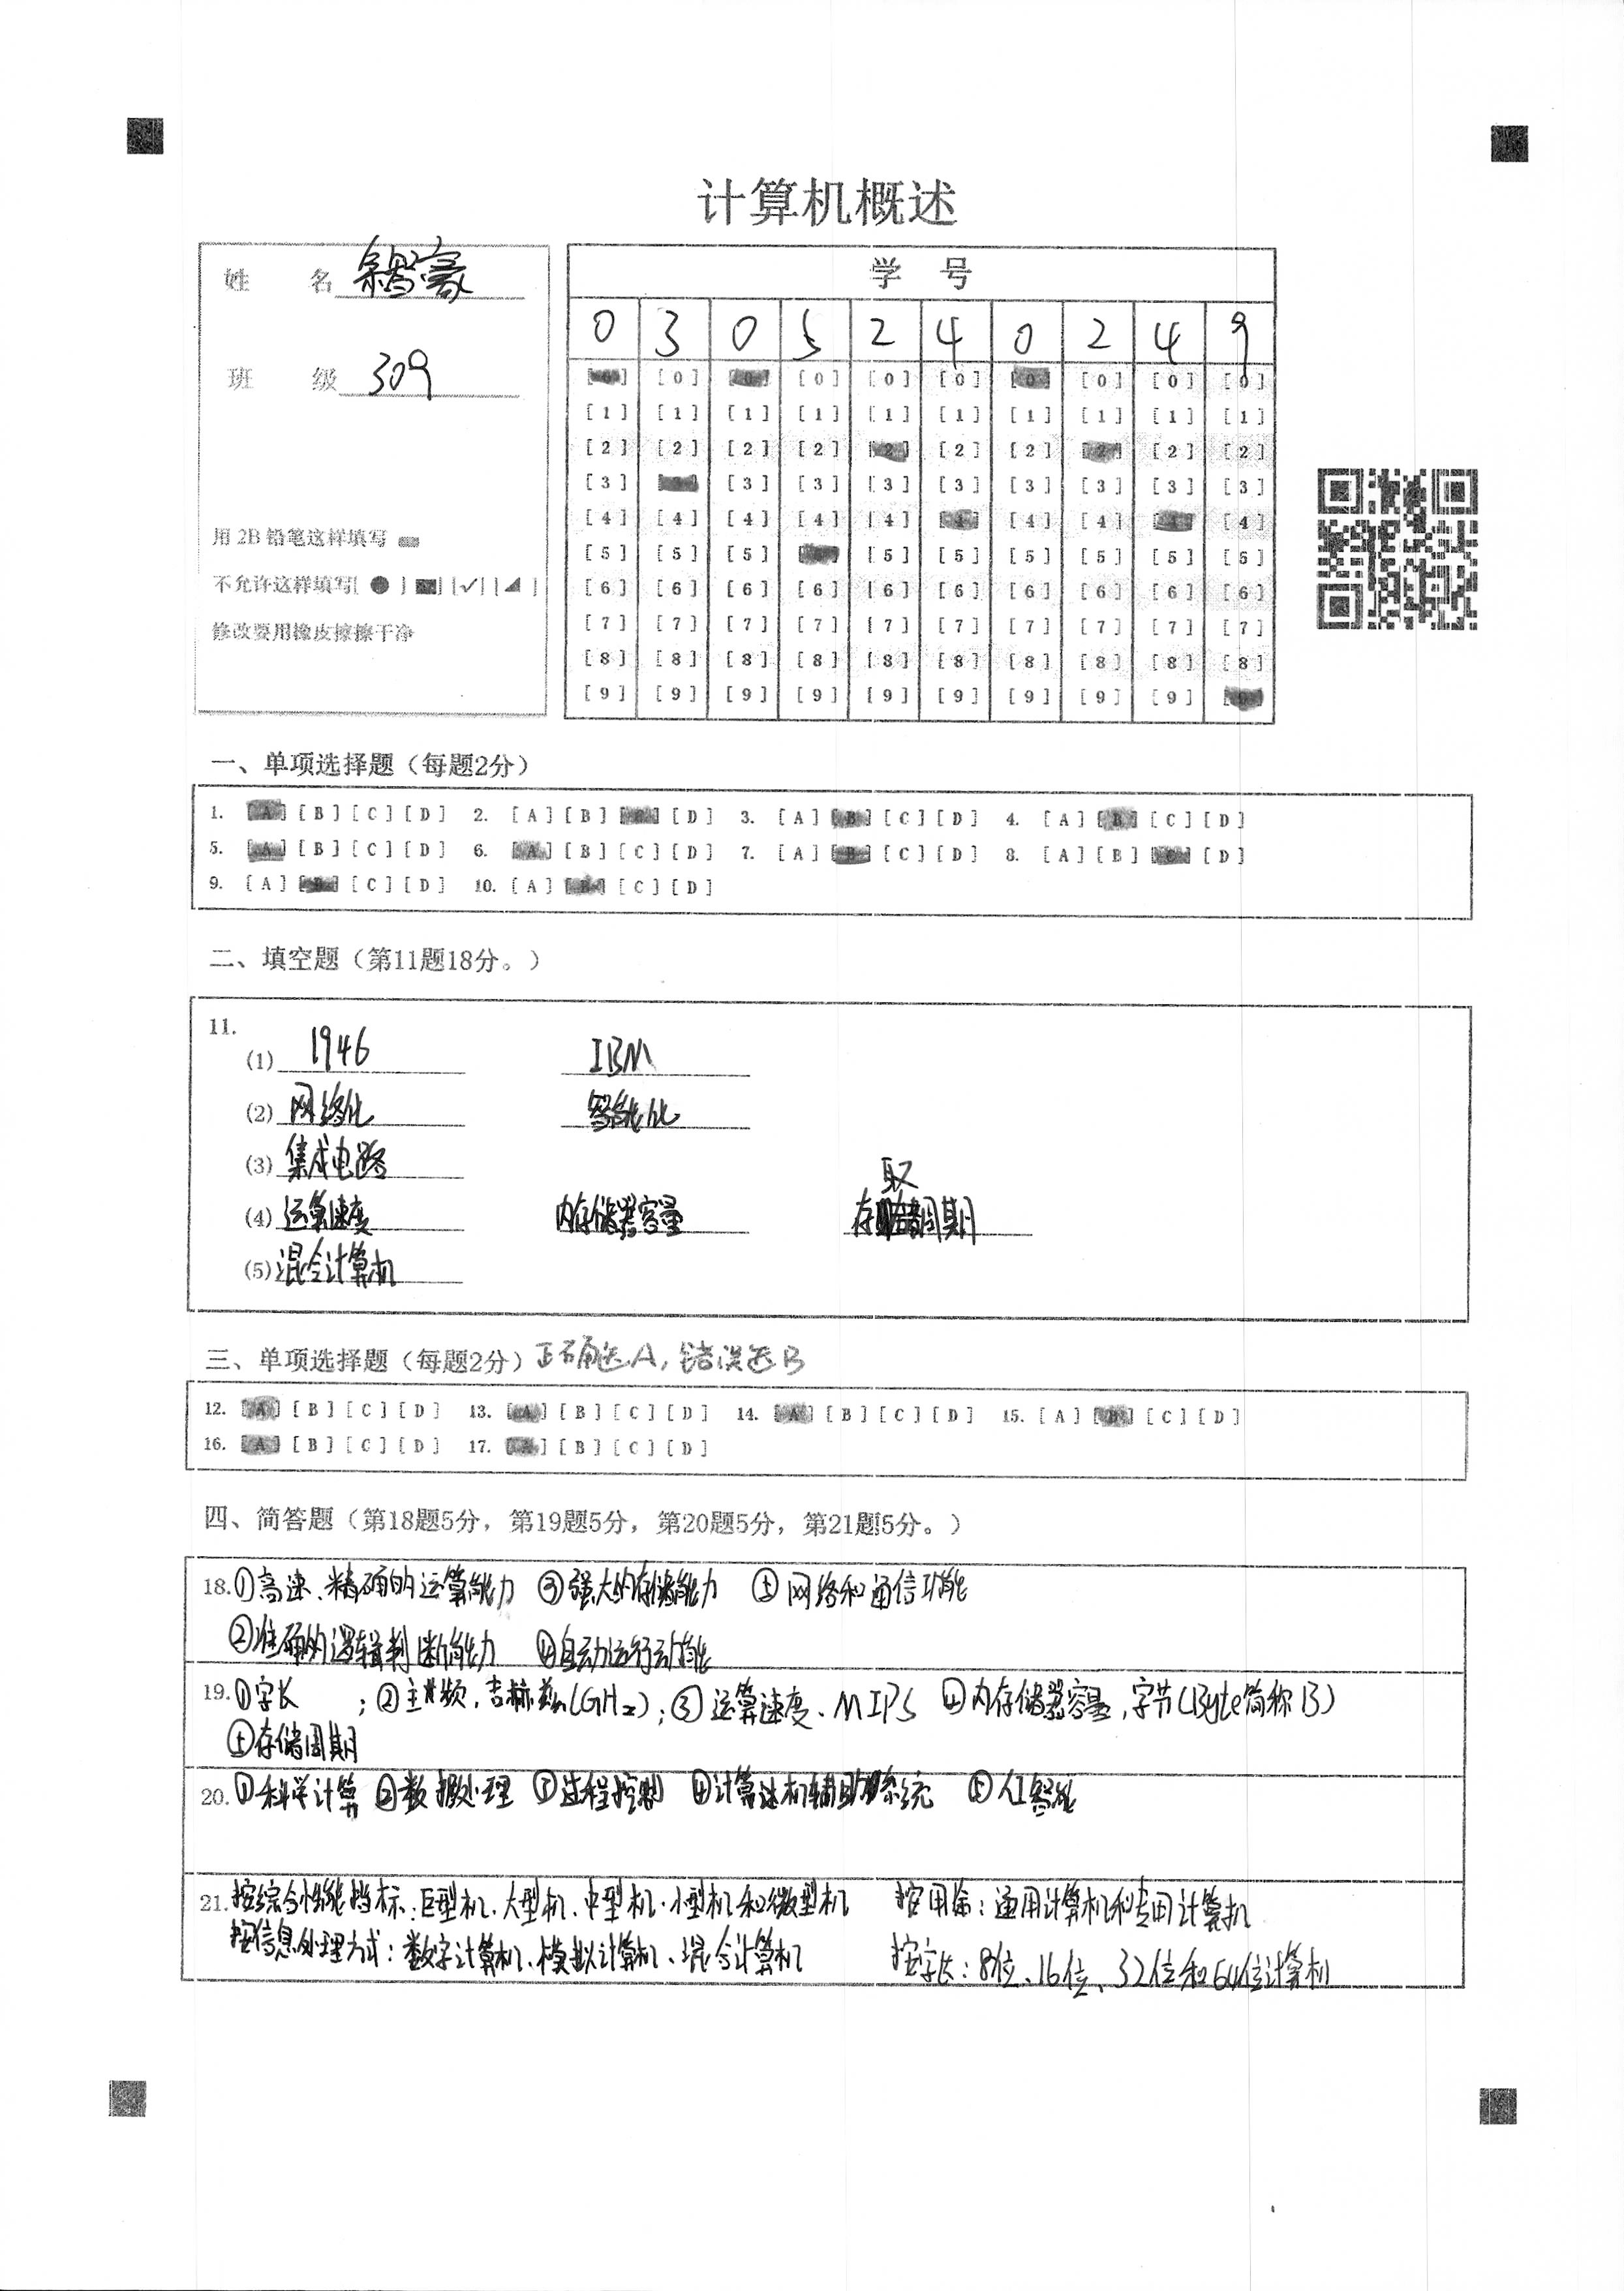 计算机概述
姓 名 余智豪
班 级 309
用 2B 铅笔这样填写
不允许这样填写[ ● ] [■] [✓] [◢ ]
修改要用橡皮擦擦干净
学 号
0 3 0 5 2 4 0 2 4 9
[0] [0] [0] [0] [0] [0] [0] [0] [0] [0]
[1] [1] [1] [1] [1] [1] [1] [1] [1] [1]
[2] [2] [2] [2] [2] [2] [2] [2] [2] [2]
[3] [3] [3] [3] [3] [3] [3] [3] [3] [3]
[4] [4] [4] [4] [4] [4] [4] [4] [4] [4]
[5] [5] [5] [5] [5] [5] [5] [5] [5] [5]
[6] [6] [6] [6] [6] [6] [6] [6] [6] [6]
[7] [7] [7] [7] [7] [7] [7] [7] [7] [7]
[8] [8] [8] [8] [8] [8] [8] [8] [8] [8]
[9] [9] [9] [9] [9] [9] [9] [9] [9] [9]
一、单项选择题（每题2分）
1. [A] [B] [C] [D] 2. [A] [B] [C] [D] 3. [A] [B] [C] [D] 4. [A] [B] [C] [D]
5. [A] [B] [C] [D] 6. [A] [B] [C] [D] 7. [A] [B] [C] [D] 8. [A] [B] [C] [D]
9. [A] [B] [C] [D] 10. [A] [B] [C] [D]
二、填空题（第11题18分。）
11.
(1) 1946 IBM
(2) 网络化 智能化
(3) 集成电路
(4) 运算速度 内存储器容量 存取周期
(5) 混合计算机
三、单项选择题（每题2分）正确选A，错误选B
12. [A] [B] [C] [D] 13. [A] [B] [C] [D] 14. [A] [B] [C] [D] 15. [A] [B] [C] [D]
16. [A] [B] [C] [D] 17. [A] [B] [C] [D]
四、简答题（第18题5分，第19题5分，第20题5分，第21题5分。）
18. ①高速、精确的运算能力 ③强大的存储能力 ⑤网络和通信功能
②准确的逻辑判断能力 ④自动运行功能
19. ①字长 ；②主频，吉赫兹(GHz)；③运算速度、MIPS ④内存储器容量，字节(Byte简称B)
⑤存储周期
20. ①科学计算 ②数据处理 ③过程控制 ④计算机辅助系统 ⑤人工智能
21. 按综合性能指标：巨型机、大型机、中型机、小型机和微型机 按用途：通用计算机和专用计算机
按信息处理方式：数字计算机、模拟计算机、混合计算机 按字长：8位、16位、32位和64位计算机